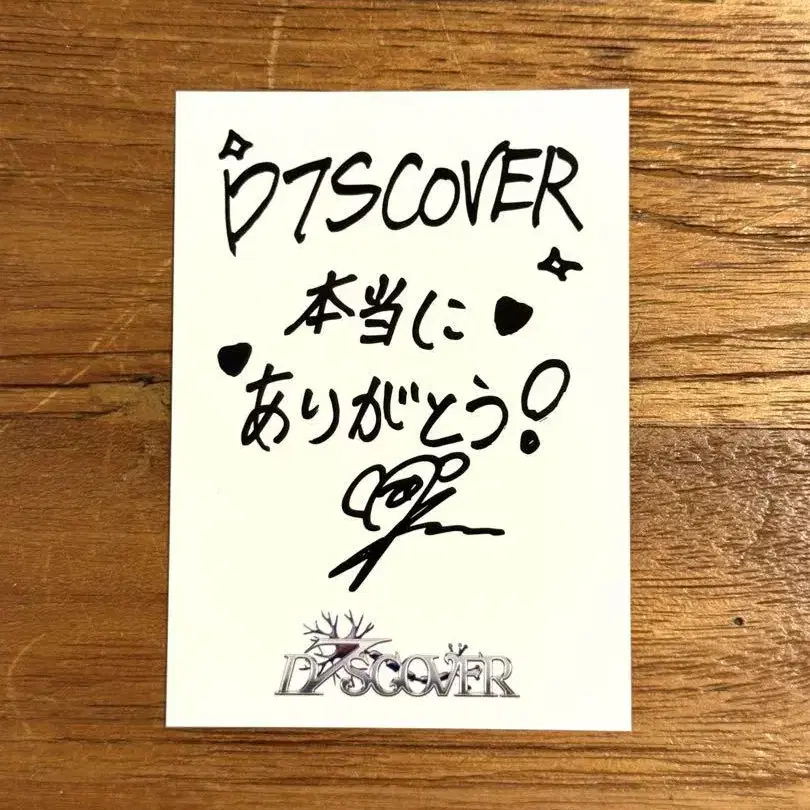 D7SCOVER
本当に
ありがとう!
D7SCOVER